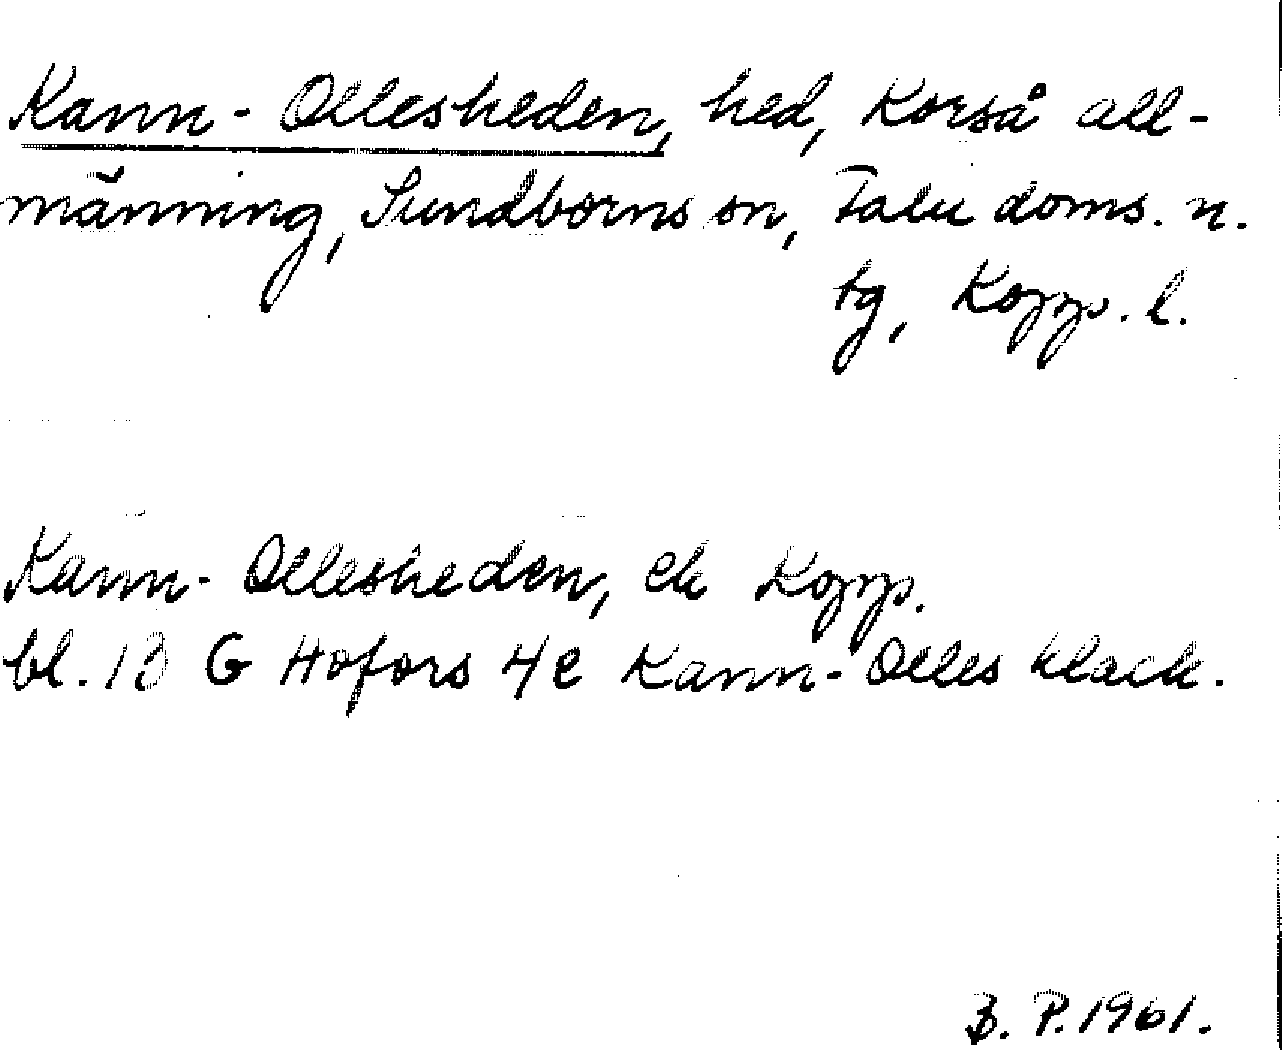 Kann-Ollesheden, hed, Korså all-
männing, Sundborns sn, Falu doms. n.
tg, Kopp. l.
Kann-Ollesheden, ek Kopp.
bl. 13 G Hofors 4e Kann-Olles klack.
B. P. 1961.